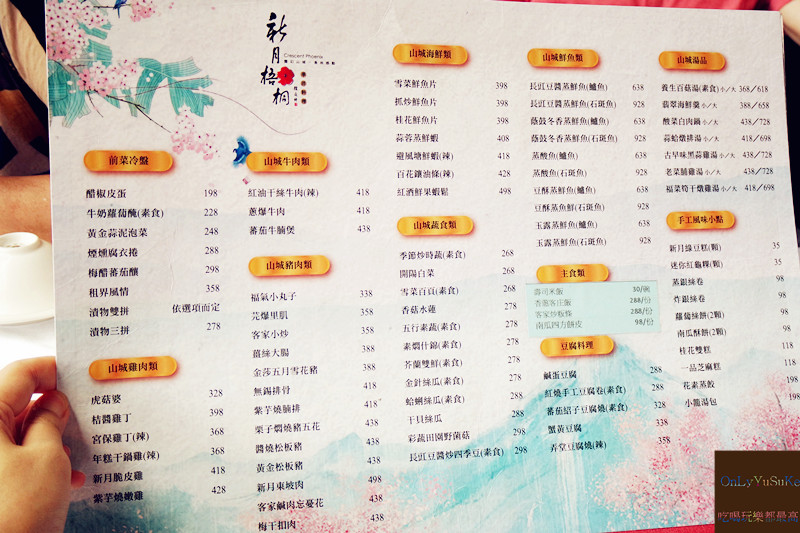 新月梧桐
Crescent Phoenix
前菜冷盤
醋椒皮蛋 198
牛奶蘿蔔醃(素食) 228
黃金蒜泥泡菜 248
煙燻腐衣捲 288
梅醋蕃茄釀 298
租界風情 358
漬物雙拼 依選項而定
漬物三拼 278
山城雞肉類
虎菇婆 328
桔醬雞丁 398
宮保雞丁(辣) 368
年糕干鍋雞(辣) 368
新月脆皮雞 418
紫芋燒嫩雞 428
山城牛肉類
紅油干絲牛肉(辣) 418
蔥爆牛肉 418
蕃茄牛腩煲 438
山城豬肉類
福氣小丸子 338
芫爆里肌 358
客家小炒 358
薑絲大腸 388
金莎五月雪花豬 388
無錫排骨 418
紫芋燒腩排 418
栗子燜燒豬五花 438
醬燒松板豬 438
黃金松板豬 438
新月東坡肉 498
客家鹹肉忘憂花 438
梅干扣肉 438
山城海鮮類
雪菜鮮魚片 398
抓炒鮮魚片 398
桂花鮮魚片 398
蒜蓉蒸鮮蝦 408
避風塘鮮蝦(辣) 418
百花鑲油條(辣) 428
紅酒鮮果蝦鬆 498
山城蔬食類
季節炒時蔬(素食) 268
開陽白菜 268
雪菜百頁(素食) 268
香菇水蓮 278
五行素蔬(素食) 278
素燜什錦(素食) 278
芥蘭雙鮮(素食) 278
金針絲瓜(素食) 278
蛤蜊絲瓜(素食) 278
干貝絲瓜 288
彩蔬田園野菌菇 298
長豇豆醬炒四季豆(素食) 298
山城鮮魚類
長豇豆醬蒸鮮魚(鱸魚) 638
長豇豆醬蒸鮮魚(石斑魚) 928
蔭豉冬香蒸鮮魚(鱸魚) 638
蔭豉冬香蒸鮮魚(石斑魚) 928
蒸酸魚(鱸魚) 638
蒸酸魚(石斑魚) 928
豆酥蒸鮮魚(鱸魚) 638
豆酥蒸鮮魚(石斑魚) 928
玉露蒸鮮魚(鱸魚) 638
玉露蒸鮮魚(石斑魚) 928
主食類
壽司米飯 30/碗
香蔥客庄飯 288/份
客家炒粄條 288/份
南瓜四方餅皮 98/份
豆腐料理
鹹蛋豆腐 288
紅燒手工豆腐卷(素食) 288
蕃茄紹子豆腐燒(素食) 328
蟹黃豆腐 338
弄堂豆腐燒(辣) 358
山城湯品
養生百菇湯(素食)小/大 368/618
翡翠海鮮羹 小/大 388/658
酸菜白肉鍋 小/大 438/728
蒜蛤燉排湯 小/大 418/698
古早味黑蒜雞湯 小/大 438/728
老菜脯雞湯 小/大 438/728
福菜筍干燉雞湯 小/大 418/698
手工風味小點
新月綠豆糕(顆) 35
迷你紅龜粿(顆) 35
蒸銀絲卷 98
炸銀絲卷 98
蘿蔔絲餅(2顆) 98
南瓜酥餅(2顆) 98
桂花雙糕 118
一品芝麻糕 118
花素蒸餃 168
小籠湯包 168
OnLyYuSuKe
吃喝玩樂都最高